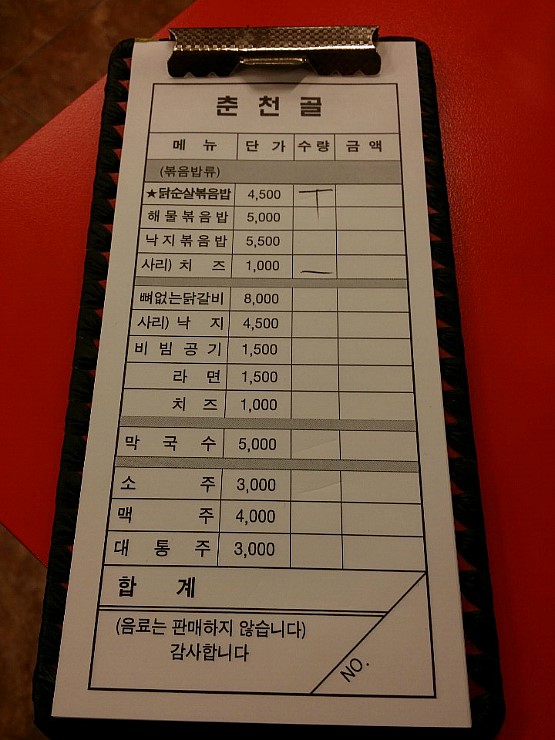 춘 천 골
메 뉴 단 가 수 량 금 액
(볶음밥류)
★닭순살볶음밥 4,500 T
해 물 볶 음 밥 5,000
낙 지 볶 음 밥 5,500
사리) 치 즈 1,000 ㅡ
뼈없는닭갈비 8,000
사리) 낙 지 4,500
비 빔 공 기 1,500
라 면 1,500
치 즈 1,000
막 국 수 5,000
소 주 3,000
맥 주 4,000
대 통 주 3,000
합 계
(음료는 판매하지 않습니다)
감사합니다
NO.